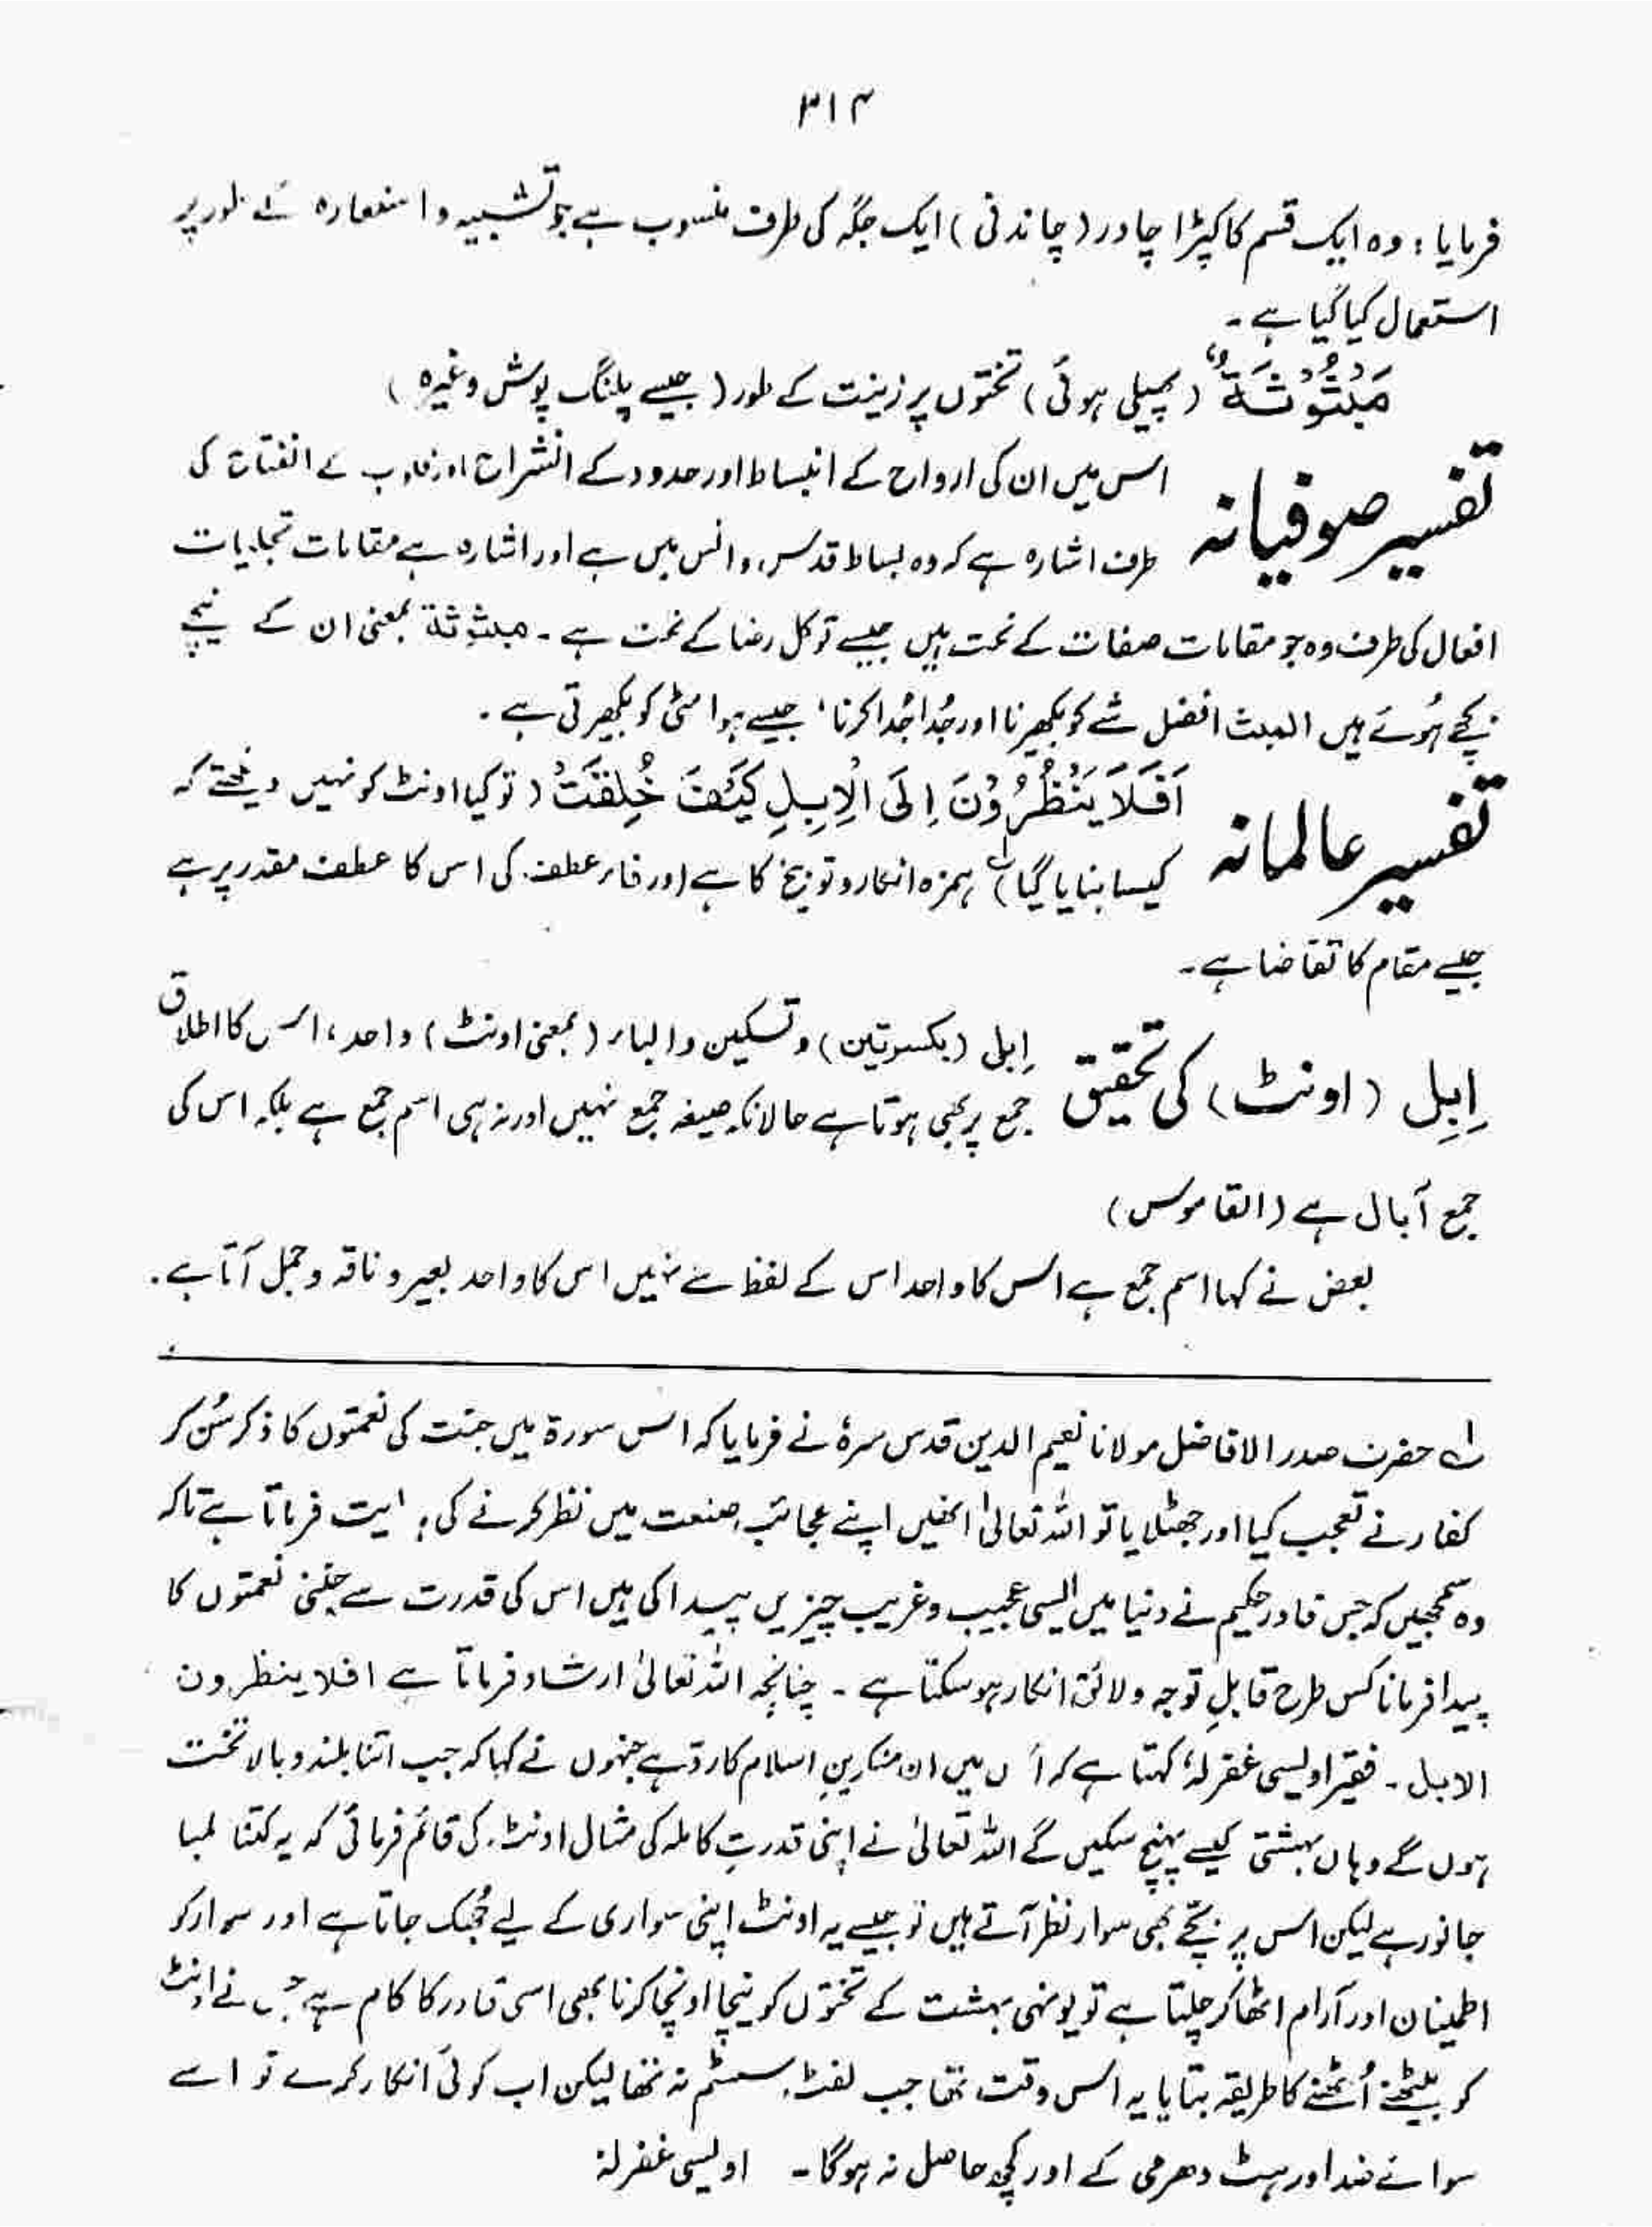 ۳۱۴
فرمایا : وہ ایک قسم کا کپڑا چادر (چاندنی) ایک جگہ کی طرف منسوب ہے جو تشبیہ و استعارہ کے طور پر
استعمال کیا گیا ہے ۔
مَبْثُوْثَةٌ (پھیلی ہوئی) تختوں پر زینت کے طور (جیسے پلنگ پوش وغیرہ)
تفسیر صوفیانہ
اس میں ان کی ارواح کے انبساط اور صدور کے انشراح اور قلوب کے انفتاح کی
طرف اشارہ ہے کہ وہ بساط قدس و انس میں ہے اور اشارہ ہے مقامات تجلیات
افعال کی طرف وہ جو مقامات صفات کے تحت ہیں جیسے توکل رضا کے تحت ہے ۔ مبثوثة بمعنی ان کے نیچے
بچھے ہُوئے ہیں البث افضل شے کو بکھیرنا اور جُدا جُدا کرنا، جیسے ہوا مٹی کو بکھیرتی ہے ۔
تفسیر عالمانہ
اَفَلَا یَنْظُرُوْنَ اِلَی الْاِبِلِ کَیْفَ خُلِقَتْ (تو کیا اونٹ کو نہیں دیکھتے کہ
کیسا بنایا گیا)؂۱ ہمزہ انکار و توبیخ کا ہے اور فاء عطف کی اس کا عطف مقدر پر ہے
جیسے مقام کا تقاضا ہے ۔
اِبِل (اونٹ) کی تحقیق
اِبل (بکسرتین) و تسکین و الباء (بمعنی اونٹ) واحد، اس کا اطلاق
جمع پر بھی ہوتا ہے حالانکہ صیغہ جمع نہیں اور نہ ہی اسم جمع ہے بلکہ اس کی
جمع آبال ہے (القاموس)
بعض نے کہا اسم جمع ہے اس کا واحد اس کے لفظ سے نہیں اس کا واحد بعیر و ناقہ و جمل آتا ہے ۔
؂۱ حضرت صدر الافاضل مولانا نعیم الدین قدس سرہٗ نے فرمایا کہ اس سورۃ میں جنت کی نعمتوں کا ذکر سُن کر
کفار نے تعجب کیا اور جھٹلایا تو اللہ تعالیٰ انھیں اپنے عجائب صنعت میں نظر کرنے کی ہدایت فرماتا ہے تاکہ
وہ سمجھیں کہ جس قادر حکیم نے دنیا میں ایسی عجیب و غریب چیزیں پیدا کی ہیں اس کی قدرت سے جنتی نعمتوں کا
پیدا فرمانا کس طرح قابلِ توجہ و لائق انکار ہو سکتا ہے ۔ چنانچہ اللہ تعالیٰ ارشاد فرماتا ہے افلا ینظرون
الابل ۔ فقیر اویسی غفرلہٗ کہتا ہے کہ اس میں ان منکرینِ اسلام کا ردّ ہے جنہوں نے کہا کہ جب اتنا بلند و بالا تخت
ہوں گے وہاں بہشتی کیسے پہنچ سکیں گے اللہ تعالیٰ نے اپنی قدرتِ کاملہ کی مثال اونٹ کی قائم فرمائی کہ یہ کتنا لمبا
جانور ہے لیکن اس پر بچے بھی سوار نظر آتے ہیں تو جیسے یہ اونٹ اپنی سواری کے لیے جُھک جاتا ہے اور سوار کو
اطمینان اور آرام اٹھا کر چلتا ہے تو یونہی بہشت کے تختوں کو نیچا اونچا کرنا بھی اسی قادر کا کام ہے جس نے اونٹ
کو بیٹھنے اُٹھنے کا طریقہ بتایا یہ اس وقت تھا جب لفٹ سسٹم نہ تھا لیکن اب کوئی انکار کرے تو اسے
سوائے ضد اور ہٹ دھرمی کے اور کچھ حاصل نہ ہوگا ۔ اویسی غفرلہٗ